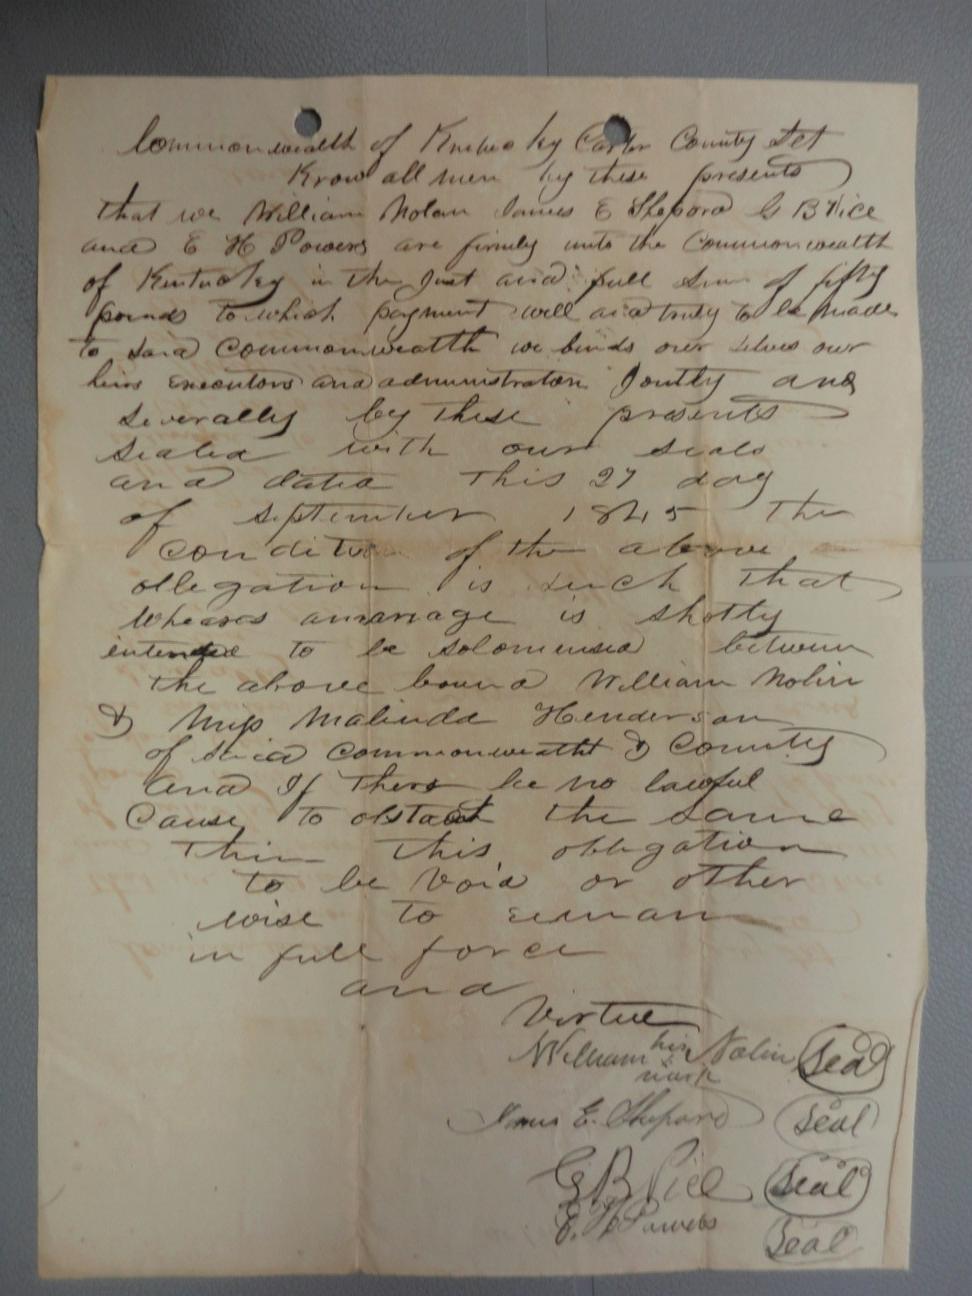 Commonwealth of Kentucky Carter County Sct
Know all men by these presents
that we William Nolan James E Shepard G B Rice
and E H Powers are firmly unto the Commonwealth
of Kentucky in the Just and full Sum of fifty
pounds to which payment well and truly to be made
to said Commonwealth we binds our selves our
heirs executors and administrators Jointly and
Severally by these presents
sealed with our seals
and dated this 27 day
of September 1845 The
condition of the above
ollegation is such that
Wheares amarriage is shotly
intended to be solomnised between
the above bound William Nolin
& Miss Malinda Henderson
of said Commonwealth & County
and If there be no lawful
Cause to obstruct the same
then this obligation
to be Void or other
wise to remain
in full force
and
Virtue
William his Nolin Seal
mark
James E. Shepard Seal
G B Rice Seal
E. H Powers Seal